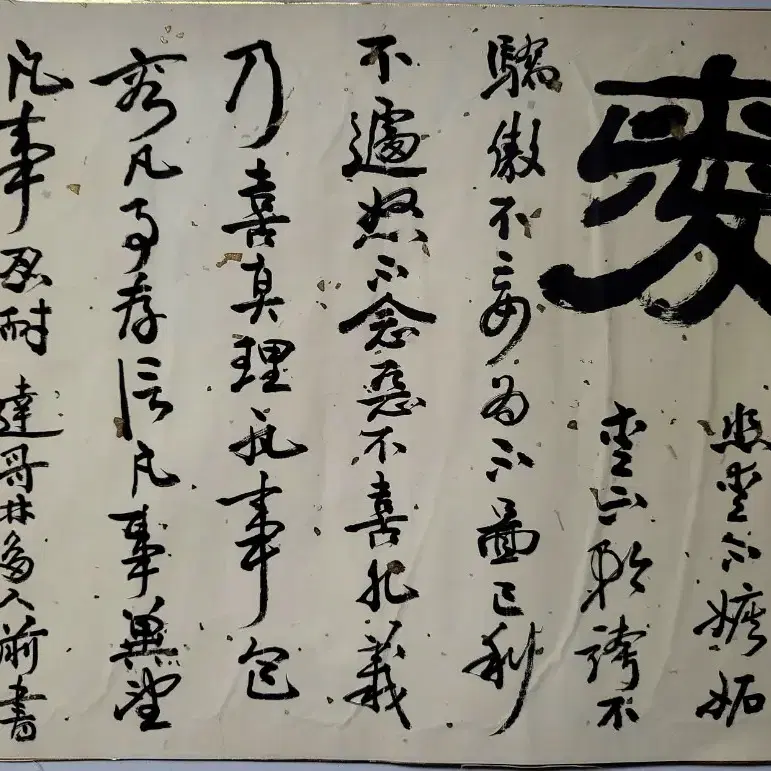 愛
愛不嫉妬
愛不矜誇不
驕傲不妄為不圖己利
不遽怒不念惡不喜非義
乃喜真理凡事包
容凡事存信凡事冀望
凡事忍耐 達哥林多人前書